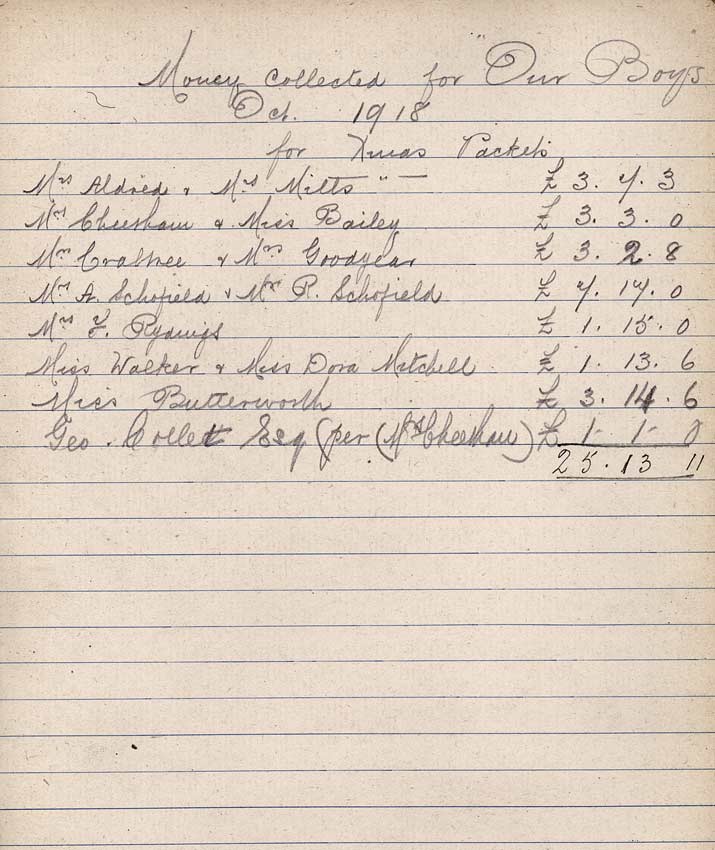 Money collected for "Our Boys
Oct. 1918
for Xmas Packets
Mrs Aldred & Mrs Mills " — £ 3. 7. 3
Mrs Cheetham & Miss Bailey £ 3. 3. 0
Mrs Crabtree & Mrs Goodyear £ 3. 2. 8
Mrs A. Schofield & Mrs R. Schofield £ 7. 17. 0
Mrs F. Rydings £ 1. 15. 0
Miss Walker & Miss Dora Mitchell £ 1. 13. 6
Miss Butterworth £ 3. 14. 6
Geo. Collett Esq (per (Mrs Cheetham) £ 1 - 1 - 0
25. 13 11